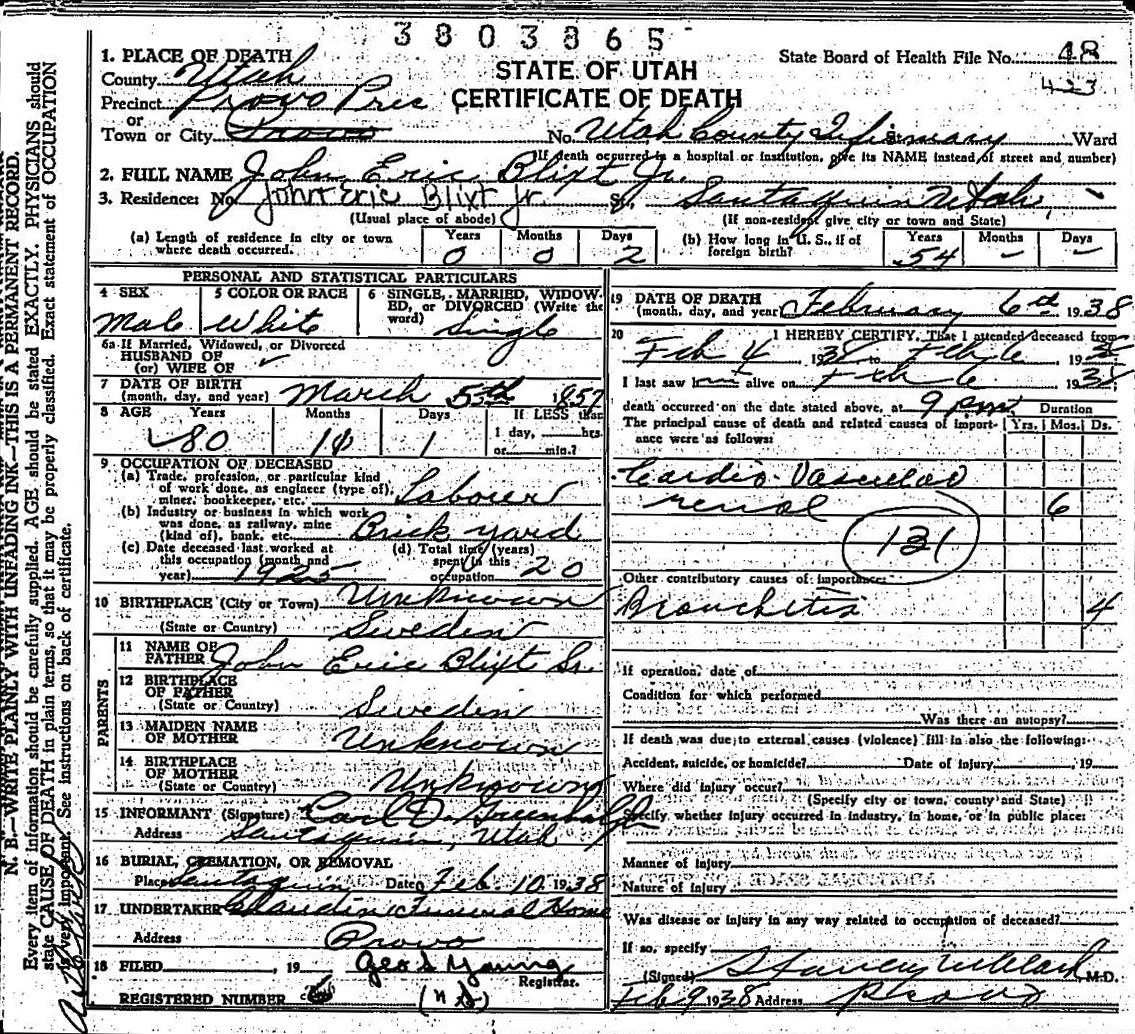 3803865
1. PLACE OF DEATH
State Board of Health File No. 48
County Utah
STATE OF UTAH
423
Precinct Provo Prec
CERTIFICATE OF DEATH
or
Town or City Provo No. Utah County Infirmary St. Ward
(If death occurred in a hospital or institution, give its NAME instead of street and number)
2. FULL NAME John Eric Blixt Jr.
3. Residence: No. John Eric Blixt Jr St. Santaquin Utah,
(Usual place of abode) (If non-resident give city or town and State)
(a) Length of residence in city or town where death occurred. Years 0 Months 0 Days 2
(b) How long in U. S., if of foreign birth? Years 54 Months – Days –
PERSONAL AND STATISTICAL PARTICULARS
4 SEX Male
5 COLOR OR RACE White
6 SINGLE, MARRIED, WIDOWED, OR DIVORCED (Write the word) Single
6a If Married, Widowed, or Divorced
HUSBAND OF
(or) WIFE OF
7 DATE OF BIRTH (month, day, and year) March 5th 1857
8 AGE Years 80 Months 11 Days 1 If LESS than 1 day, hrs. or min.?
9 OCCUPATION OF DECEASED
(a) Trade, profession, or particular kind of work done, as engineer (type of), miner, bookkeeper, etc. Laborer
(b) Industry or business in which work was done, as railway, mine (kind of), bank, etc. Brick yard
(c) Date deceased last worked at this occupation (month and year) 1925
(d) Total time (years) spent in this occupation 20
10 BIRTHPLACE (City or Town) Unknown
(State or Country) Sweden
PARENTS
11 NAME OF FATHER John Eric Blixt Sr.
12 BIRTHPLACE OF FATHER (State or Country) Sweden
13 MAIDEN NAME OF MOTHER Unknown
14 BIRTHPLACE OF MOTHER (State or Country) Unknown
15 INFORMANT (Signature) Carl D. Greenhalgh
Address Santaquin, Utah
16 BURIAL, CREMATION, OR REMOVAL
Place Santaquin Date Feb. 10 1938
17 UNDERTAKER Claudin Funeral Home
Address Provo
18 FILED 19 Geo S Young
Registrar.
REGISTERED NUMBER
19 DATE OF DEATH (month, day, and year) February 6th 1938
20 I HEREBY CERTIFY, That I attended deceased from
Feb 4 1938 to Feby 6 1938
I last saw alive on Feb 6 1938
death occurred on the date stated above, at 9 pm Duration
The principal cause of death and related causes of importance were as follows: Yrs. Mos. Ds.
Cardio-Vascular
renal 6
131
Other contributory causes of importance:
Bronchitis 4
If operation, date of
Condition for which performed
Was there an autopsy?
If death was due to external causes (violence) fill in also the following:
Accident, suicide, or homicide? Date of injury 19
Where did injury occur?
(Specify city or town, county and State)
Specify whether injury occurred in industry, in home, or in public place:
Manner of injury
Nature of injury
Was disease or injury in any way related to occupation of deceased?
If so, specify
(Signed) M.D.
Feb 9 1938 Address Provo
N. B.—WRITE PLAINLY WITH UNFADING INK—THIS IS A PERMANENT RECORD.
Every item of information should be carefully supplied. AGE should be stated EXACTLY. PHYSICIANS should
state CAUSE OF DEATH in plain terms, so that it may be properly classified. Exact statement of OCCUPATION
is very important. See instructions on back of certificate.